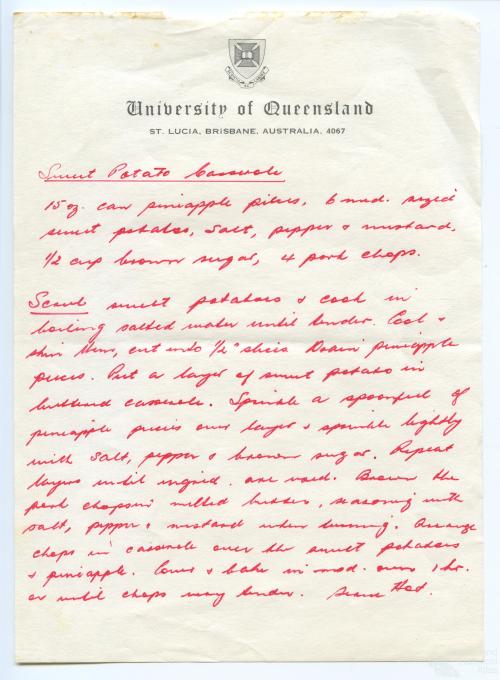 University of Queensland
ST. LUCIA, BRISBANE, AUSTRALIA, 4067
Sweet Potato Casserole
15 oz. can pineapple pieces, 6 med. sized
sweet potatoes, salt, pepper & mustard,
1/2 cup brown sugar, 4 pork chops.
Scrub sweet potatoes & cook in
boiling salted water until tender. Cool &
skin them, cut into 1/2" slices. Drain pineapple
pieces. Put a layer of sweet potato in
buttered casserole. Sprinkle a spoonful of
pineapple pieces over layer & sprinkle lightly
with salt, pepper & brown sugar. Repeat
layers until ingred. are used. Brown the
pork chops in melted butter, seasoning with
salt, pepper & mustard when turning. Arrange
chops in casserole over the sweet potatoes
& pineapple. Cover & bake in mod. oven 1 hr.
or until chops very tender. Serve Hot.